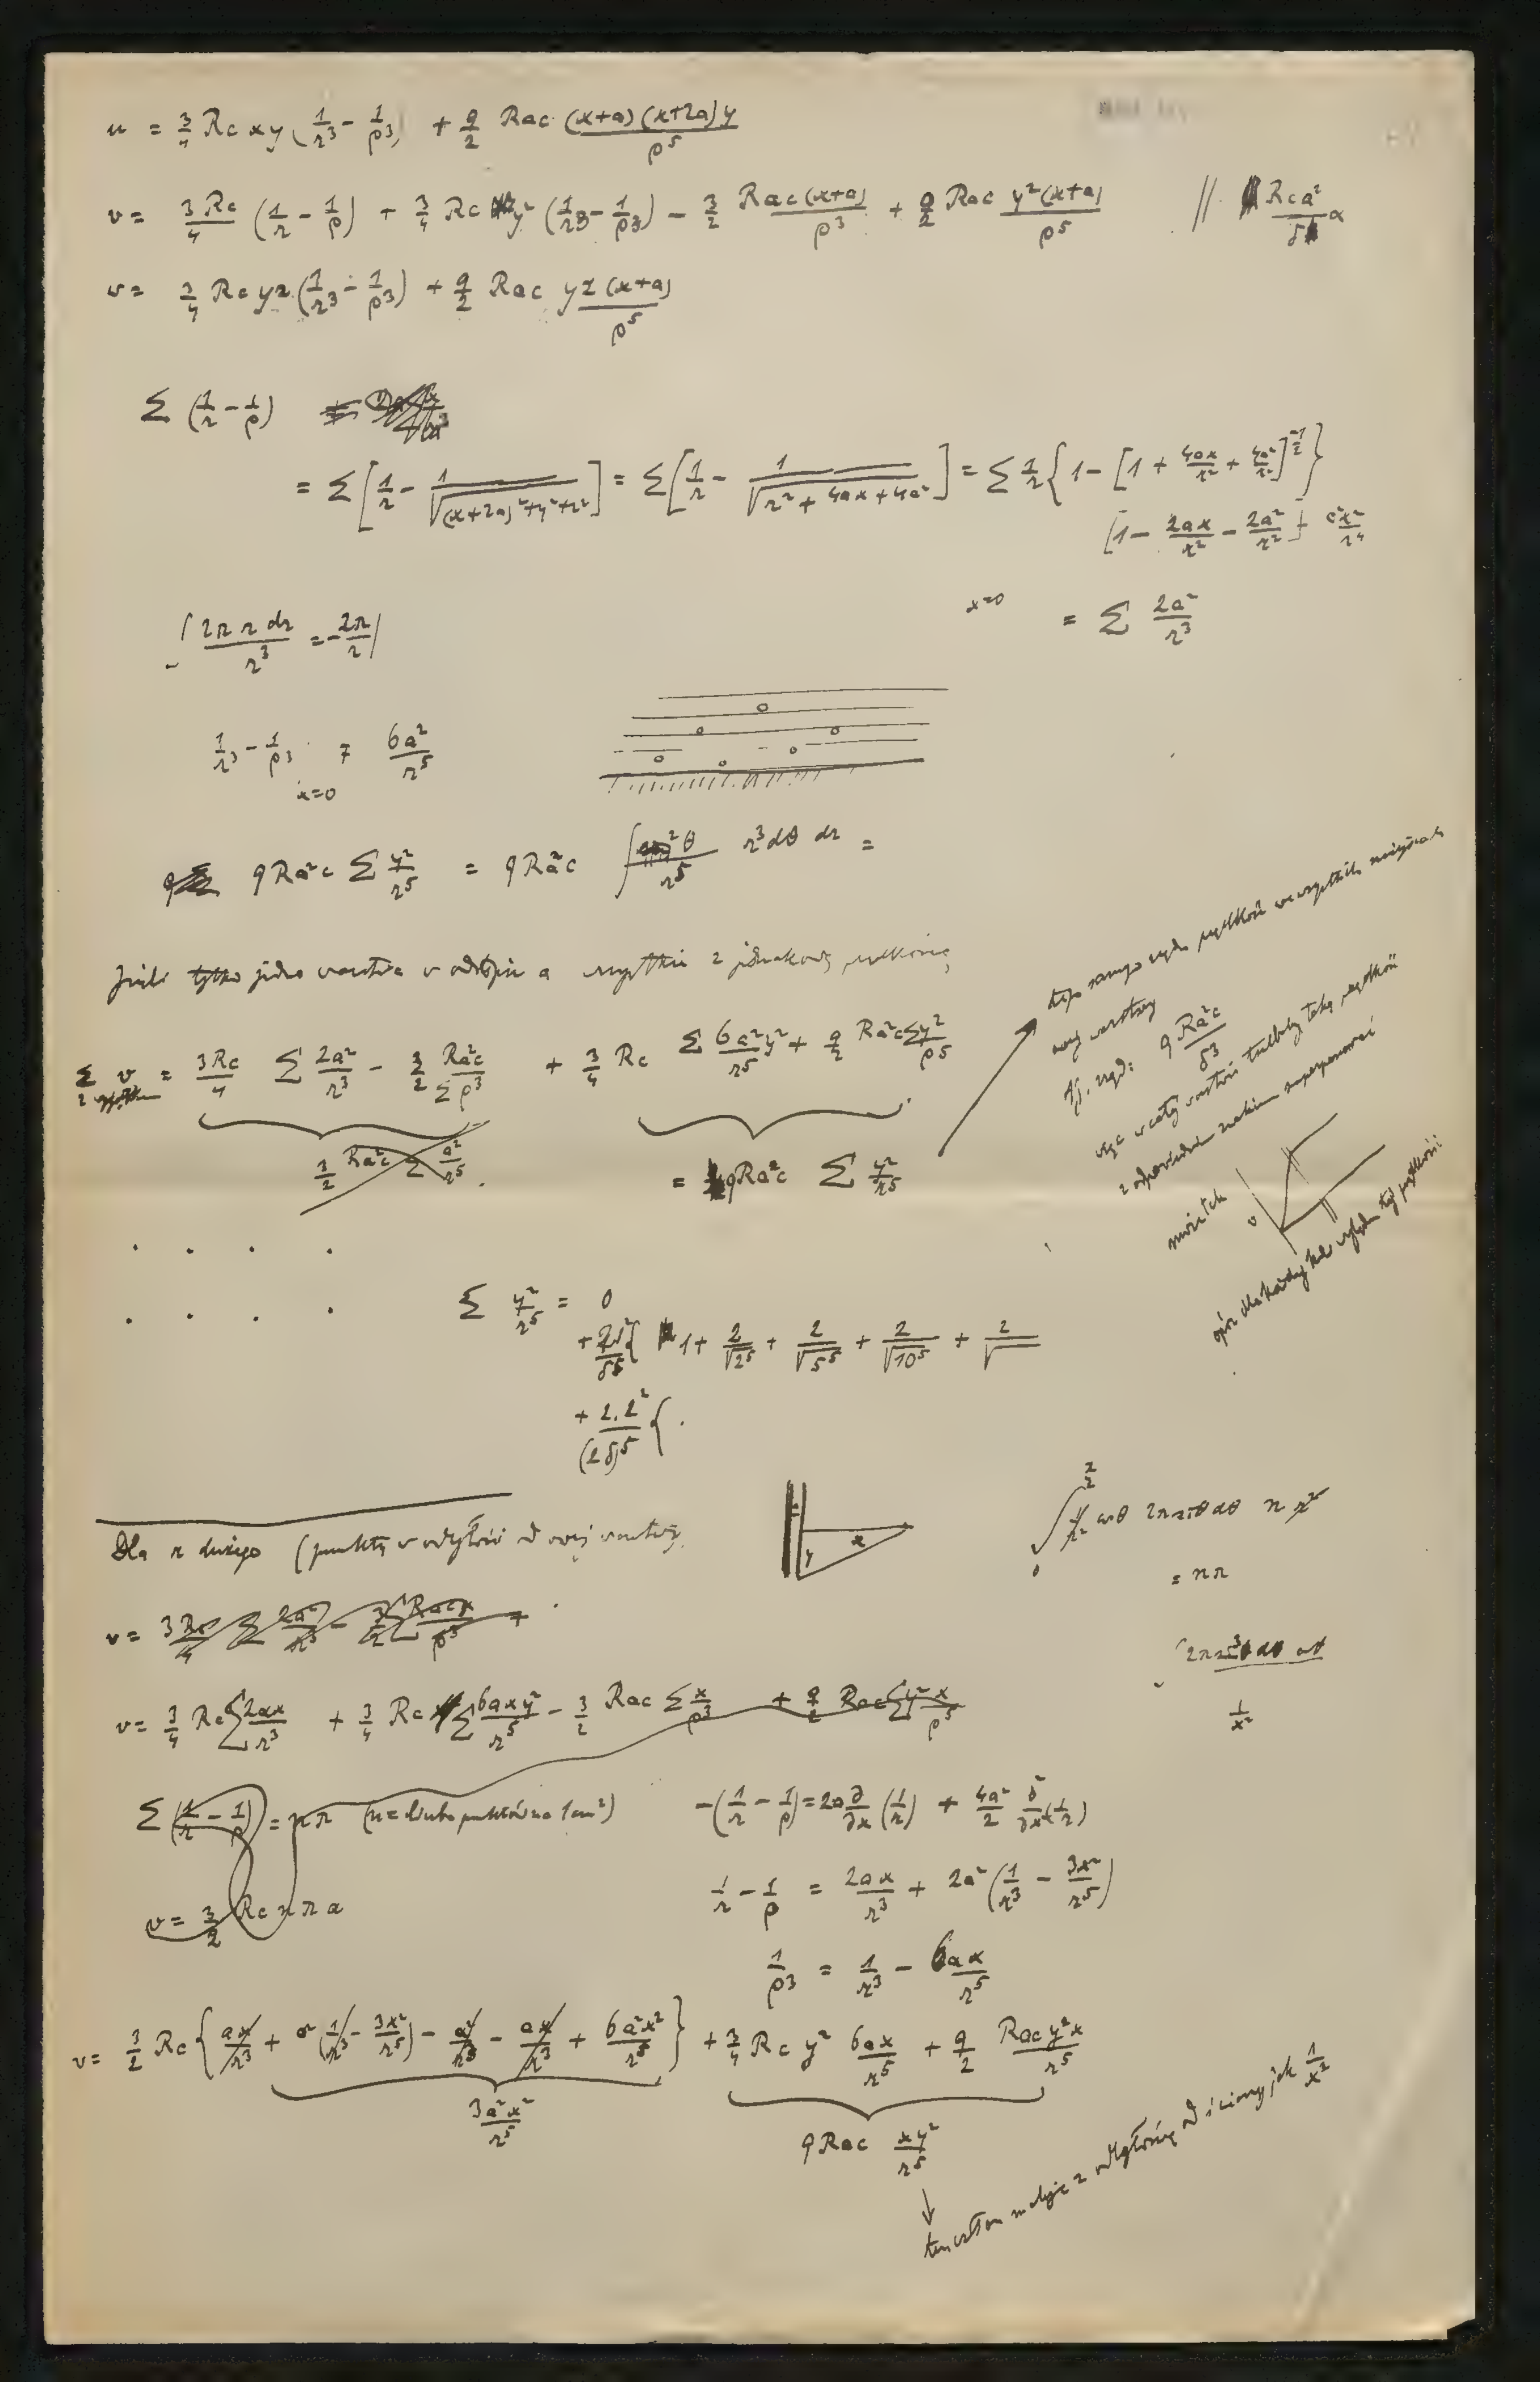 u = 3/4 Rc xy (1/r³ - 1/ρ³) + 9/2 Rac (x+a)(x+2a)y/ρ⁵
v = 3Rc/4 (1/r - 1/ρ) + 3/4 Rc y² (1/r³ - 1/ρ³) - 3/2 Rac(x+a)/ρ³ + 9/2 Rac y²(x+a)/ρ⁵ // Rca²/δ α
w = 3/4 Rc yz (1/r³ - 1/ρ³) + 9/2 Rac yz(x+a)/ρ⁵
Σ (1/r - 1/ρ)
= Σ [1/r - 1/√((x+2a)²+y²+z²)] = Σ [1/r - 1/√(r²+4ax+4a²)] = Σ 1/r {1 - [1 + 4ax/r² + 4a²/r²]^(-1/2)}
[1 - 2ax/r² - 2a²/r²] + a²x²/r⁴
x=0 = Σ 2a²/r³
∫ 2π r dr/r³ = -2π/r |
1/r³ - 1/ρ³ = 6a²/r⁵
x=0
9Ra²c Σ y²/r⁵ = 9Ra²c ∫ cos²θ/r⁵ r³ dθ dr =
Jeśli tylko jedna warstwa w odstępie a wszystkie z jednakową prędkością
Σ v = 3Rc/4 Σ 2a²/r³ - 3/2 Σ Ra²c/ρ³ + 3/4 Rc Σ 6a²y²/r⁵ + 9/2 Ra²c Σ y²/ρ⁵
1/2 Ra²c Σ a²/r⁵
= 9Ra²c Σ y²/r⁵
tego samego rzędu prędkość we wszystkich miejscach
tej warstwy
tj. rzędu 9Ra²c/δ³
więc w całej warstwie taką prędkość
z odpowiednim znakiem superponować
v
opór dla każdej kuli względem tej prędkości
Σ y²/r⁵ = 0
+ 2δ²/δ⁵ { 1 + 2/√2⁵ + 2/√5⁵ + 2/√10⁵ + 2/√
+ 2.2²/(2δ)⁵ { .
Dla x dużego (punktu w odległości od owej warstwy
x
y
∫₀^(π/2) 1/r² cosθ 2π sinθ dθ n r²
= nπ
v = 3Rc/4 Σ 2a²/r³ - 3/2 Σ Racx/ρ³ +
∫ 2π sin³θ dθ
1/x²
v = 3/4 Rc Σ 2ax/r³ + 3/4 Rc Σ 6axy²/r⁵ - 3/2 Rac Σ x/ρ³ + 9/2 Rac Σ y²x/ρ⁵
Σ (1/r - 1/ρ) = nπ (n = liczba punktów na 1cm²)
-(1/r - 1/ρ) = 2a ∂/∂x (1/r) + 4a²/2 ∂²/∂x² (1/r)
1/r - 1/ρ = 2ax/r³ + 2a² (1/r³ - 3x²/r⁵)
v = 3/2 Rc n π a
1/ρ³ = 1/r³ - 6ax/r⁵
v = 3/2 Rc {ax/r³ + a² (1/r³ - 3x²/r⁵) - a²/r³ - ax/r³ + 6a²x²/r⁵} + 3/4 Rc y² 6ax/r⁵ + 9/2 Rac y²x/r⁵
3a²x²/r⁵
9Rac xy²/r⁵
ten człon maleje z odległością od ściany jak 1/x²